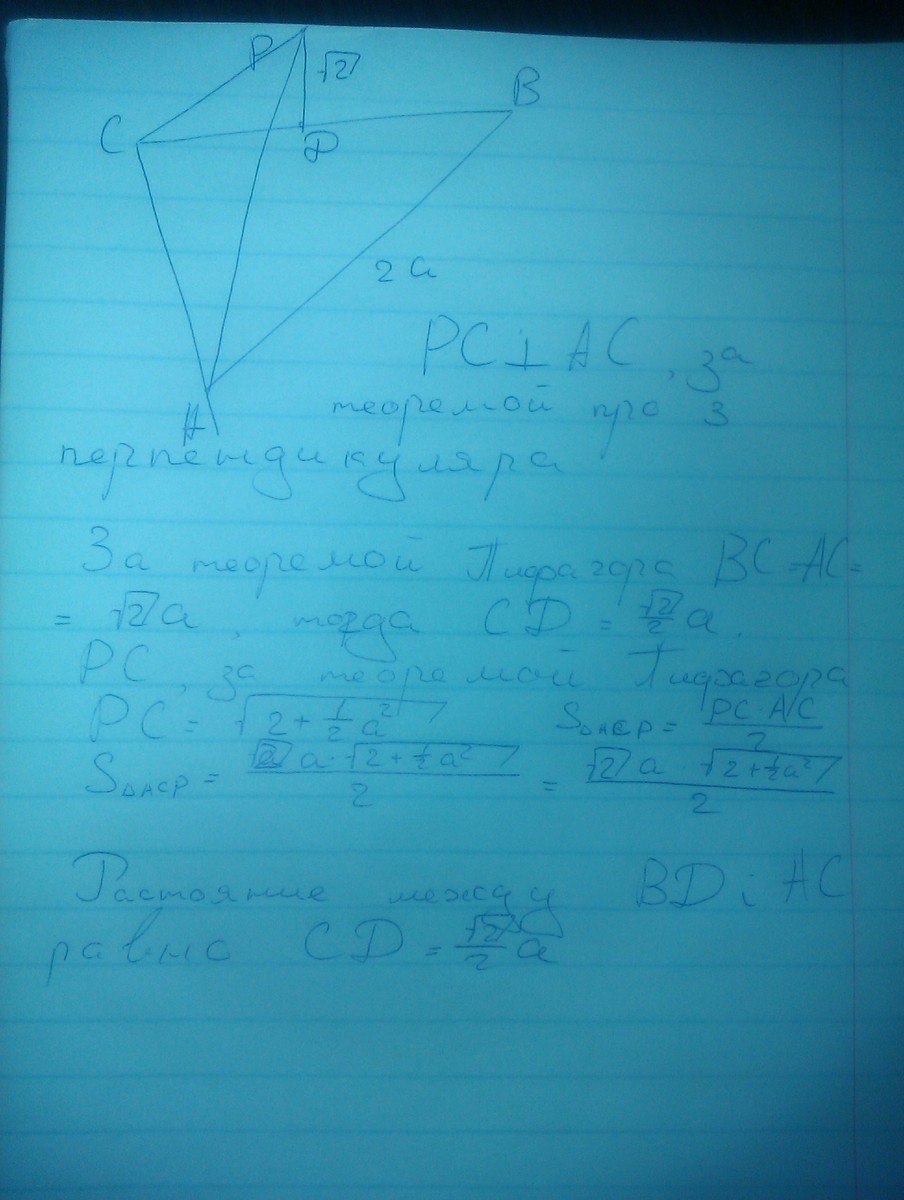 P √2
B
C D
2 a
A
PC⊥AC, за
теоремой про 3
перпендикуляра
За теоремой Пифагора BC=AC=
= √2 a, тогда CD = √2/2 a.
PC, за теоремой Пифагора
PC = √(2+1/2 a²) S△ACP = PC·AC/2
S△ACP = √2 a·√(2+1/2 a²)/2 = √2 a·√(2+1/2 a²)/2
Растояние между BD i AC
равно CD = √2/2 a